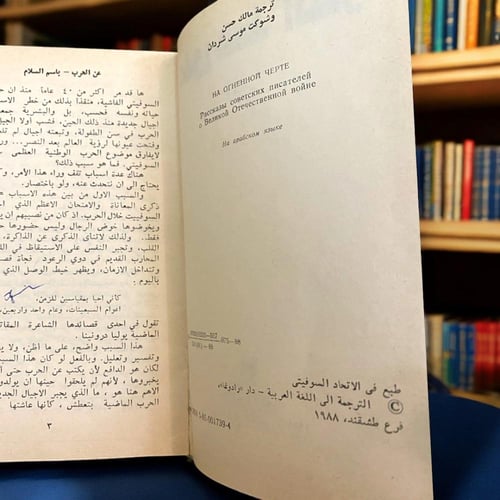 ترجمة مالك حسن
وشوكت موسى شردان
НА ОГНЕННОЙ ЧЕРТЕ
Рассказы советских писателей
о Великой Отечественной войне
На арабском языке
طبع في الاتحاد السوفيتي
© الترجمة الى اللغة العربية – دار «رادوغا»،
فرع طشقند، ١٩٨٨
عن الحرب – باسم السلام
ها قد مر اكثر من ٤٠ عاما منذ ان
السوفيتي الفاشية، منقذا بذلك من خطر
حياته ونفسه فحسب، بل والبشرية جمعاء
اجيال جديدة منذ ذلك الحين. فشب اولا
الحرب في سن الطفولة، وتبعته اجيال لم
وفتحت عيونها لرؤية العالم بعد النصر...
لايفارق موضوع الحرب الوطنية العظمى
السوفيتي. فما هو سبب ذلك؟
هناك عدة اسباب تقف وراء هذا الامر،
يحتاج الى ان نتحدث عنه، ولو باختصار.
والسبب الاول من بين هذه الاسباب
ذكرى المعاناة والامتحان الاعظم الذي
السوفييت خلال الحرب، اذ كان من نصيبهم ان
ويخوضوها خوض الرجال وليس حضورها
فقط. ولذلك لاتنأى الذكرى عن الذاكرة،
القلب، وتجبر النفس على الاستيقاظ في
المحارب القديم في دوي الرعود فجأة
وتتداخل الازمان، ويظهر خيط الوصل الذي
باليوم.
كاني احيا بمقياسين للزمن،
اعوام السبعينات، وعام واحد واربعين،
تقول في احدى قصائدها الشاعرة
الماضية يوليا درونينا.
هذا السبب واضح، على ما اظن، ولا
وتفسير وتعليل. وبالفعل لو كان هذا
لكان هو الدافع لأن يكتب عن الحرب حتى
يخبروها، لأنهم لم يلحقوا حينها ان يولدوا
الاهم هنا هو، ما الذي يجبر الاجيال
الحرب الماضية بتعطش، كأنها عاشتها
٣